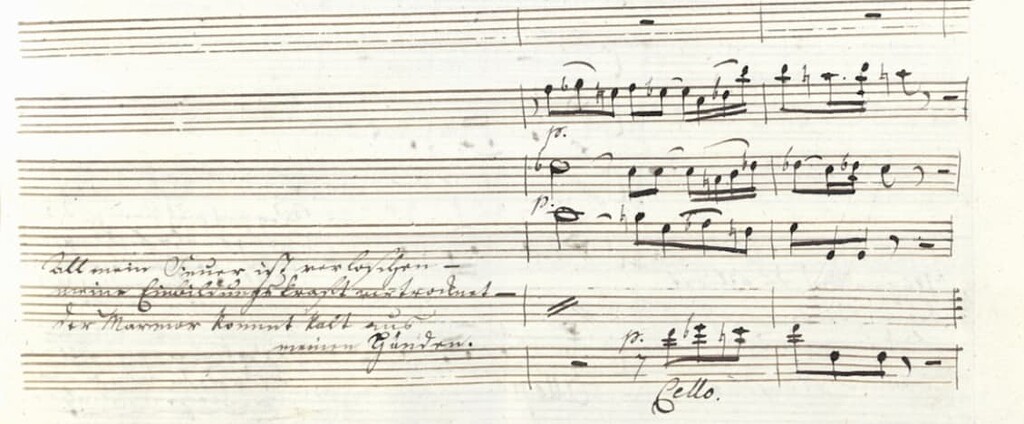 p.
p.
All mein Feuer ist verloschen –
meine Einbildungskraft vertrocknet –
der Marmor kommt kalt aus
meinen Händen.
p.
Cello.